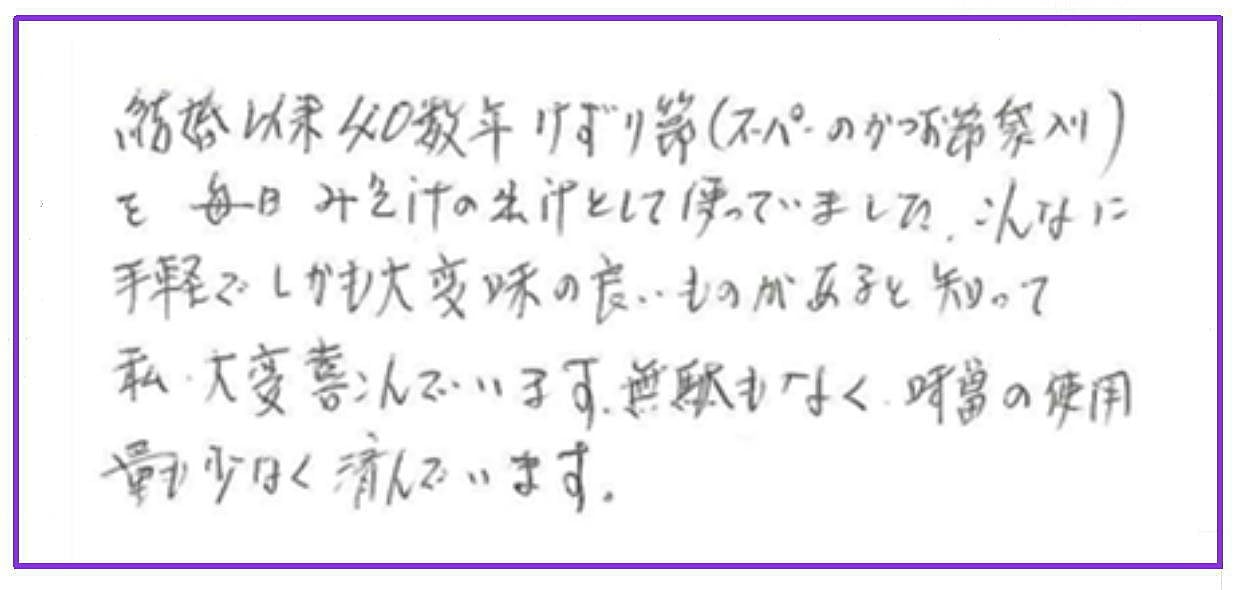 結婚以来40数年けずり節(スーパーのかつお節袋入り)
を 毎日 みそ汁の出汁として使っていました、こんなに
手軽でしかも大変味の良いものがあると知って
私、大変喜こんでいます、無駄もなく、味噌の使用
量も少なく済んでいます。